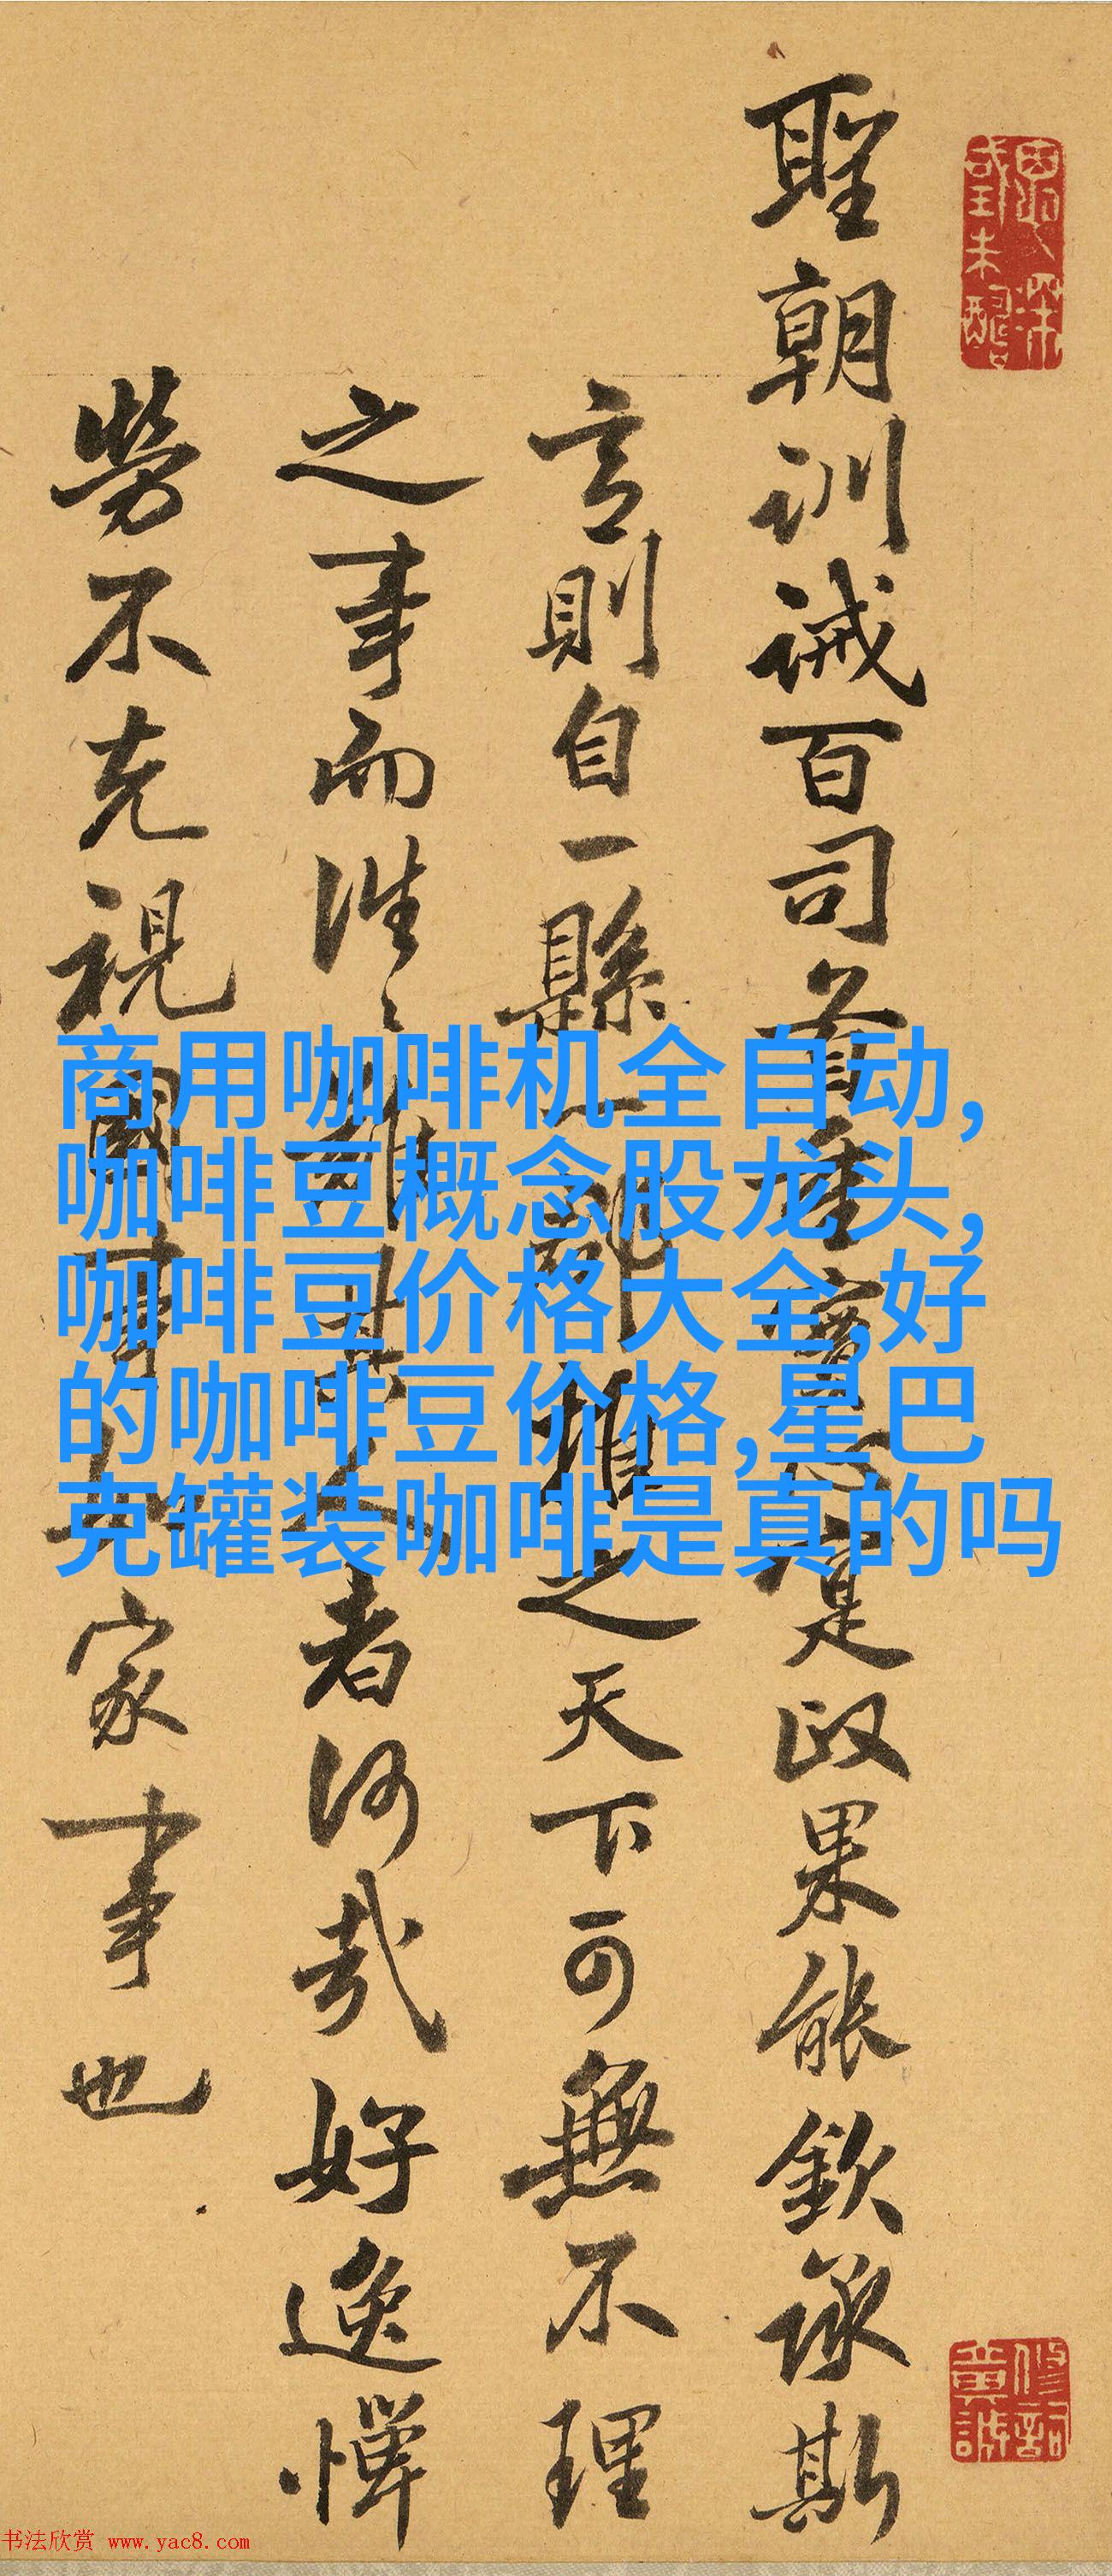 聖朝訓誡百司首重實心寔政果能欽承斯
言則自一縣一郡推之天下可無不理
之事而往々難其人者何哉好逸憚
勞不克視國事如家事也
商用咖啡机全自动,
咖啡豆概念股龙头,
咖啡豆价格大全,好
的咖啡豆价格,星巴
克罐装咖啡是真的吗
书法欣赏 www.yac8.com